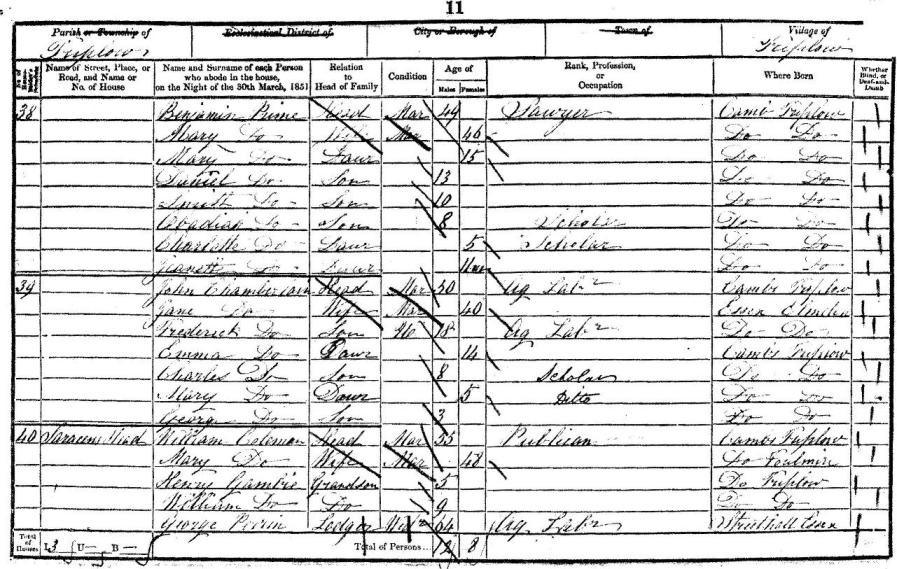 11
Parish or Township of Ecclesiastical District of City or Borough of Town of Village of
Triplow Triplow
Name of Street, Place, or Road, and Name or No. of House Name and Surname of each Person who abode in the house, on the Night of the 30th March, 1851 Relation to Head of Family Condition Age of Males Females Rank, Profession, or Occupation Where Born Whether Blind, or Deaf-and-Dumb
38 Benjamin Prime Head Mar 49 Sawyer Camb Triplow
Mary Do Wife Mar 46 Do Do
Mary Do Daur 15 Do Do
Daniel Do Son 13 Do Do
Do Son 10 Do Do
Obadiah Do Son 8 Scholar Do Do
Charlotte Do Daur 5 Scholar Do Do
Do Daur 11 Do Do
39 John Chamberlain Head Mar 50 Ag Labr Cambs Triplow
Jane Do Wife Mar 40 Essex
Frederick Do Son 18 Ag Labr Do Do
Emma Do Daur 14 Cambs Triplow
Charles Do Son 8 Scholar Do Do
Mary Do Daur 5 Ditto Do Do
George Do Son 3 Do Do
40 Saracens Head William Coleman Head Mar 55 Publican Cambs Triplow
Mary Do Wife Mar 48 Do Foulmire
Henry Gambie Grandson 5 Do Triplow
William Do Do 9 Do Do
George Perrin Lodger Widr 64 Ag Labr Streethall Essex
Total of Houses I 3 U — B — Total of Persons... 12 8